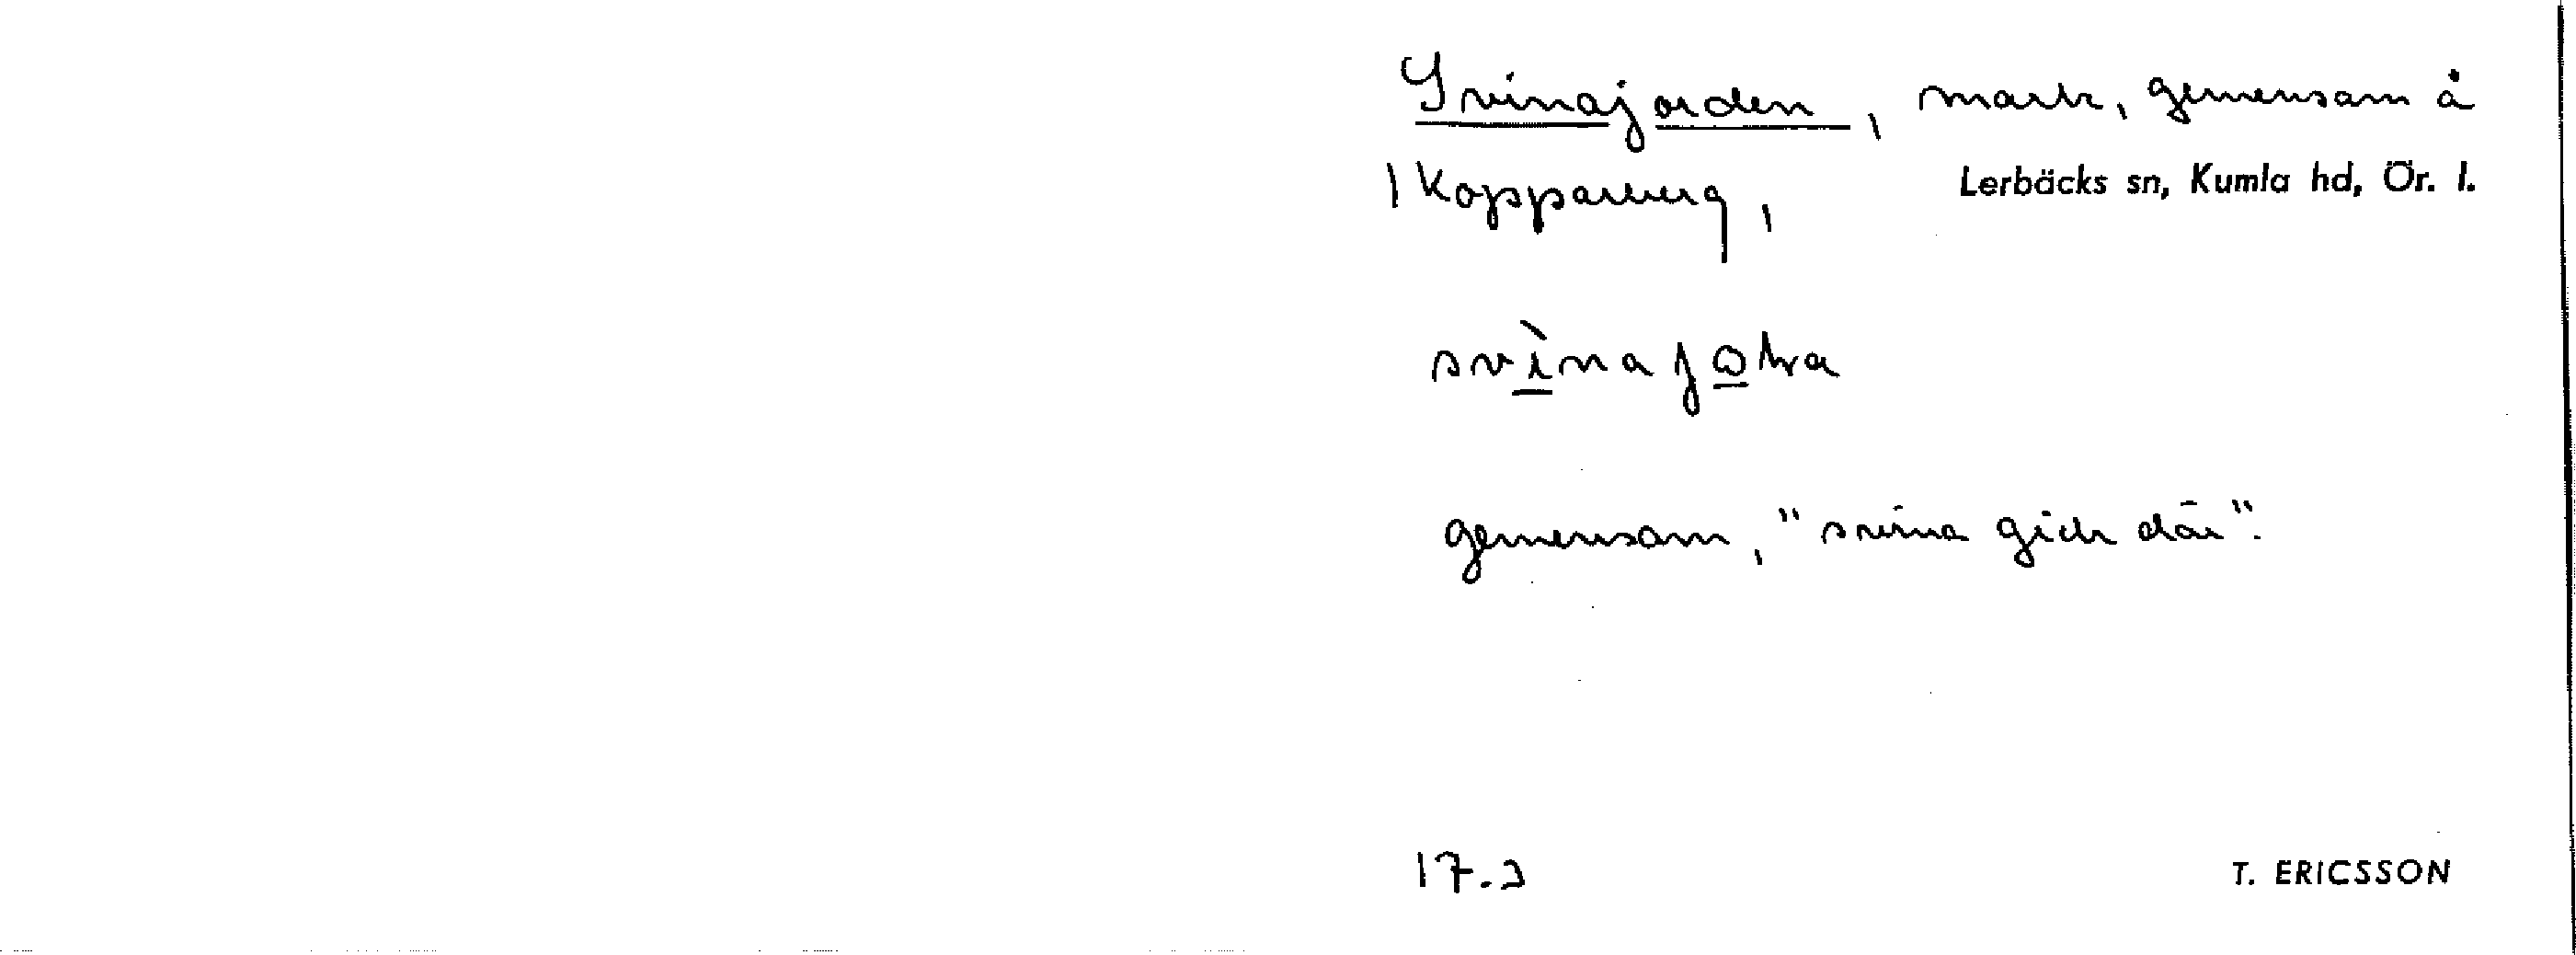 Svinajorden, mark, gemensam å
1 Kopparberg, Lerbäcks sn, Kumla hd, Ör. l.
gemensam, "svina gick där".
17.2
T. ERICSSON